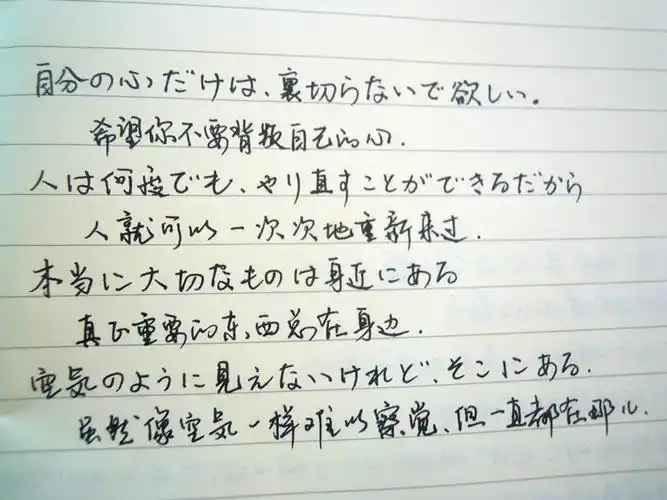 自分の心だけは、裏切らないで欲しい。
希望你不要背叛自己的心.
人は何度でも、やり直すことができるだから
人就可以一次次地重新来过.
本当に大切なものは身近にある
真正重要的东西总在身边.
空気のように見えないけれど、そこにある.
虽然像空気一样难以察觉、但一直都在那儿.